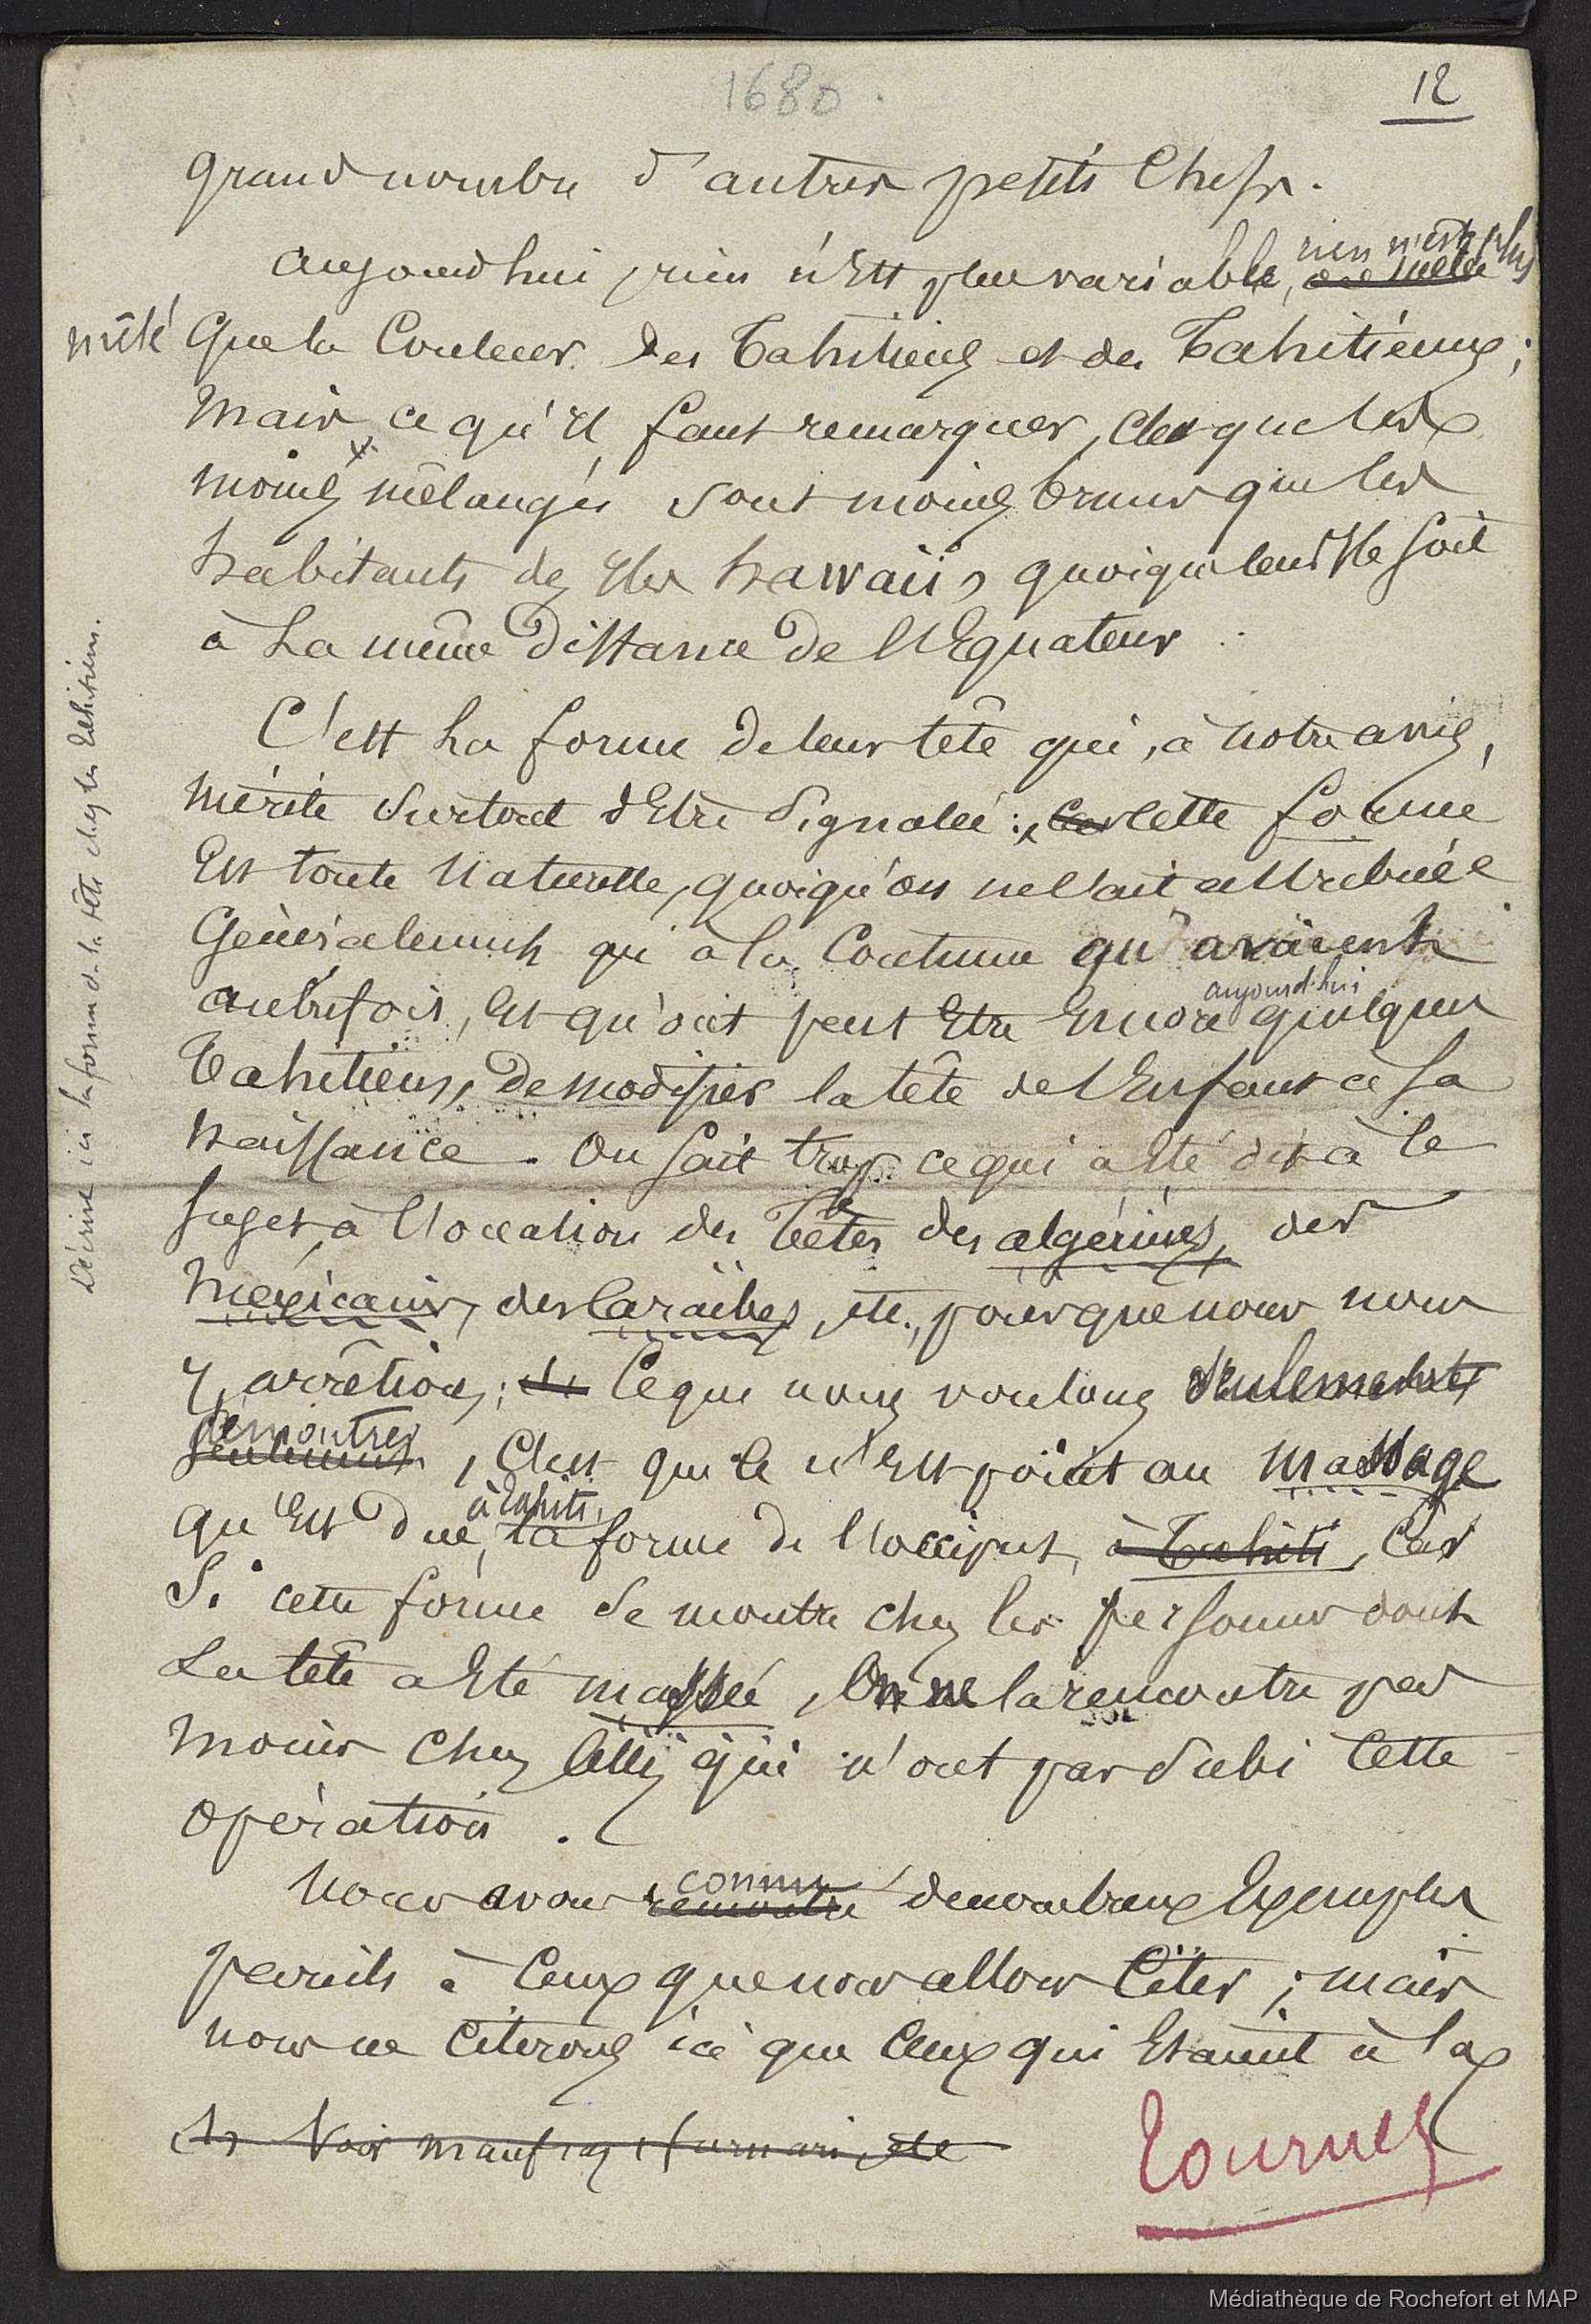 1680.
12
grand nombre d'autres petits chefs.
rien n'est plus
aujourd'hui, rien n'est plus variable, ou mêlée
mêlé que la Couleur des Tahitiens et des Tahitiennes;
Mais ce qu'il faut remarquer, c'est que les
moins mêlangés sont moins bruns que les
habitants des Iles hawaii, quoique leur Ile soit
à la même distance de l'Equateur.
C'est la forme de leur tête qui, à notre avis,
mérite surtout d'Etre signalée: car cette forme
Est toute naturelle, quoiqu'on ne l'ait attribuée
Généralement qu'à la Coutume qu'avaient
aujourd'hui
autrefois, et qu'ont peut Etre Encore quelques
Tahitiens, de modifier la tête de l'Enfant à sa
naissance. On sait trop ce qui a Eté dit à ce
sujet, à l'occasion des Têtes des algériens, des
mexicains, des Caraïbes, etc., pour que nous nous
y arrêtions; Ce que nous voulons seulement
démontrer
seulement, C'est que ce n'Est point au massage
à Tahiti,
qu'Est due, la forme de l'occiput, à Tahiti, Car
Si cette forme se montre chez les personnes dont
La tête a Eté massée, On ne la rencontre pas
moins chez celles qui n'ont pas subi Cette
opération.
connu
Nous avons rencontré de nombreux Exemples
pareils à Ceux que nous allons Citer; mais
nous ne Citerons ici que Ceux qui Etaient à la
(1) Voir
Tournez
Décrire ici la forme de la tête chez les Tahitiens.
Médiathèque de Rochefort et MAP